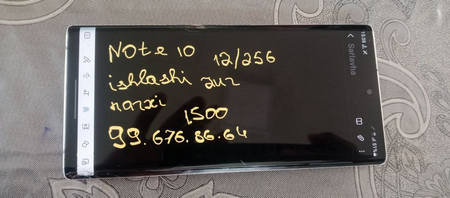 Sarlavha
Note 10 12/256
ishlashi zur
narxi
1500
99.676.86.64